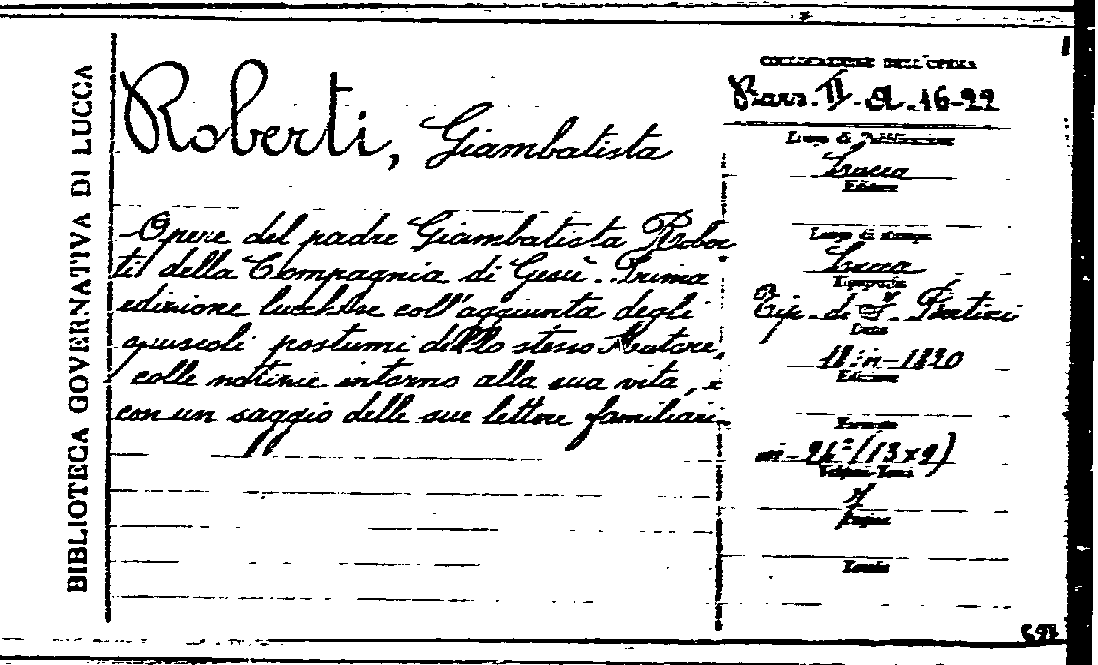 BIBLIOTECA GOVERNATIVA DI LUCCA
Roberti, Giambatista
Opere del padre Giambatista Rober
ti della Compagnia di Gesù. Prima
edizione lucchese coll'aggiunta degli
opuscoli postumi dello stesso Autore,
colle notizie intorno alla sua vita, e
con un saggio delle sue lettere familiari.
COLLOCAZIONE DELL'OPERA
II. A. 16-22
Luogo di Pubblicazione
Lucca
Editore
Luogo di stampa
Lucca
Tipografia
Tip. di F. Bertini
Data
Edizione
Formato
in-24° (13x9)
Volumi-Tomi
7
Pagine
Tavole